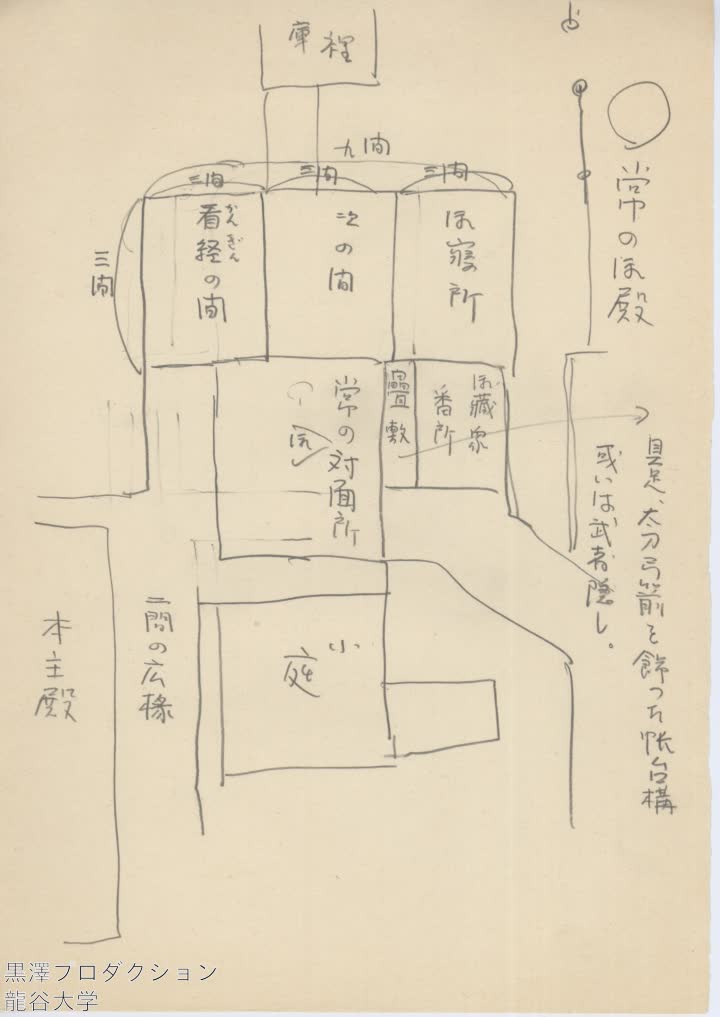 常の御殿
具足、太刀弓箭を飾った帳台構
或いは武者隠し。
庫裡
九間
三間
三間
三間
三間
御寝所
次の間
看経の間
かんきん
御蔵衆
番所
畳敷
常の対面所
小庭
二間の広椽
本主殿
黒澤プロダクション
龍谷大学